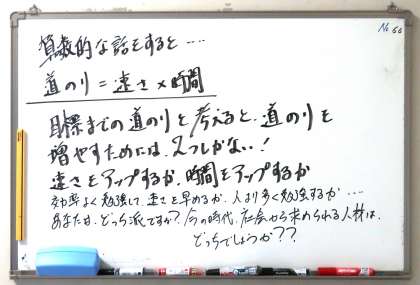 No 60
算数的な話をすると・・・・
道のり=速さ×時間
目標までの道のりと考えると、道のりを
増やすためには、2つしかない!
速さをアップするか、時間をアップするか
効率よく勉強して、速さを早めるか、人より多く勉強するか・・・・
あなたは、どっち派ですか?今の時代、社会から求められる人材は、
どっちでしょうか??